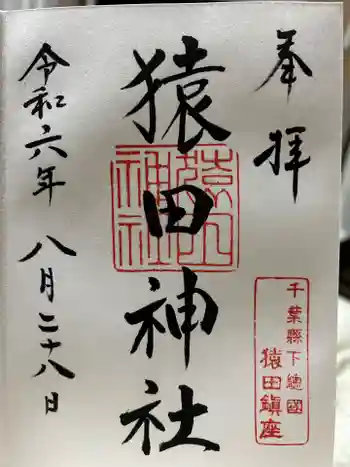 奉拝
千葉縣下總國
猿田鎮座
猿田神社
猿田神社
令和六年八月二十八日